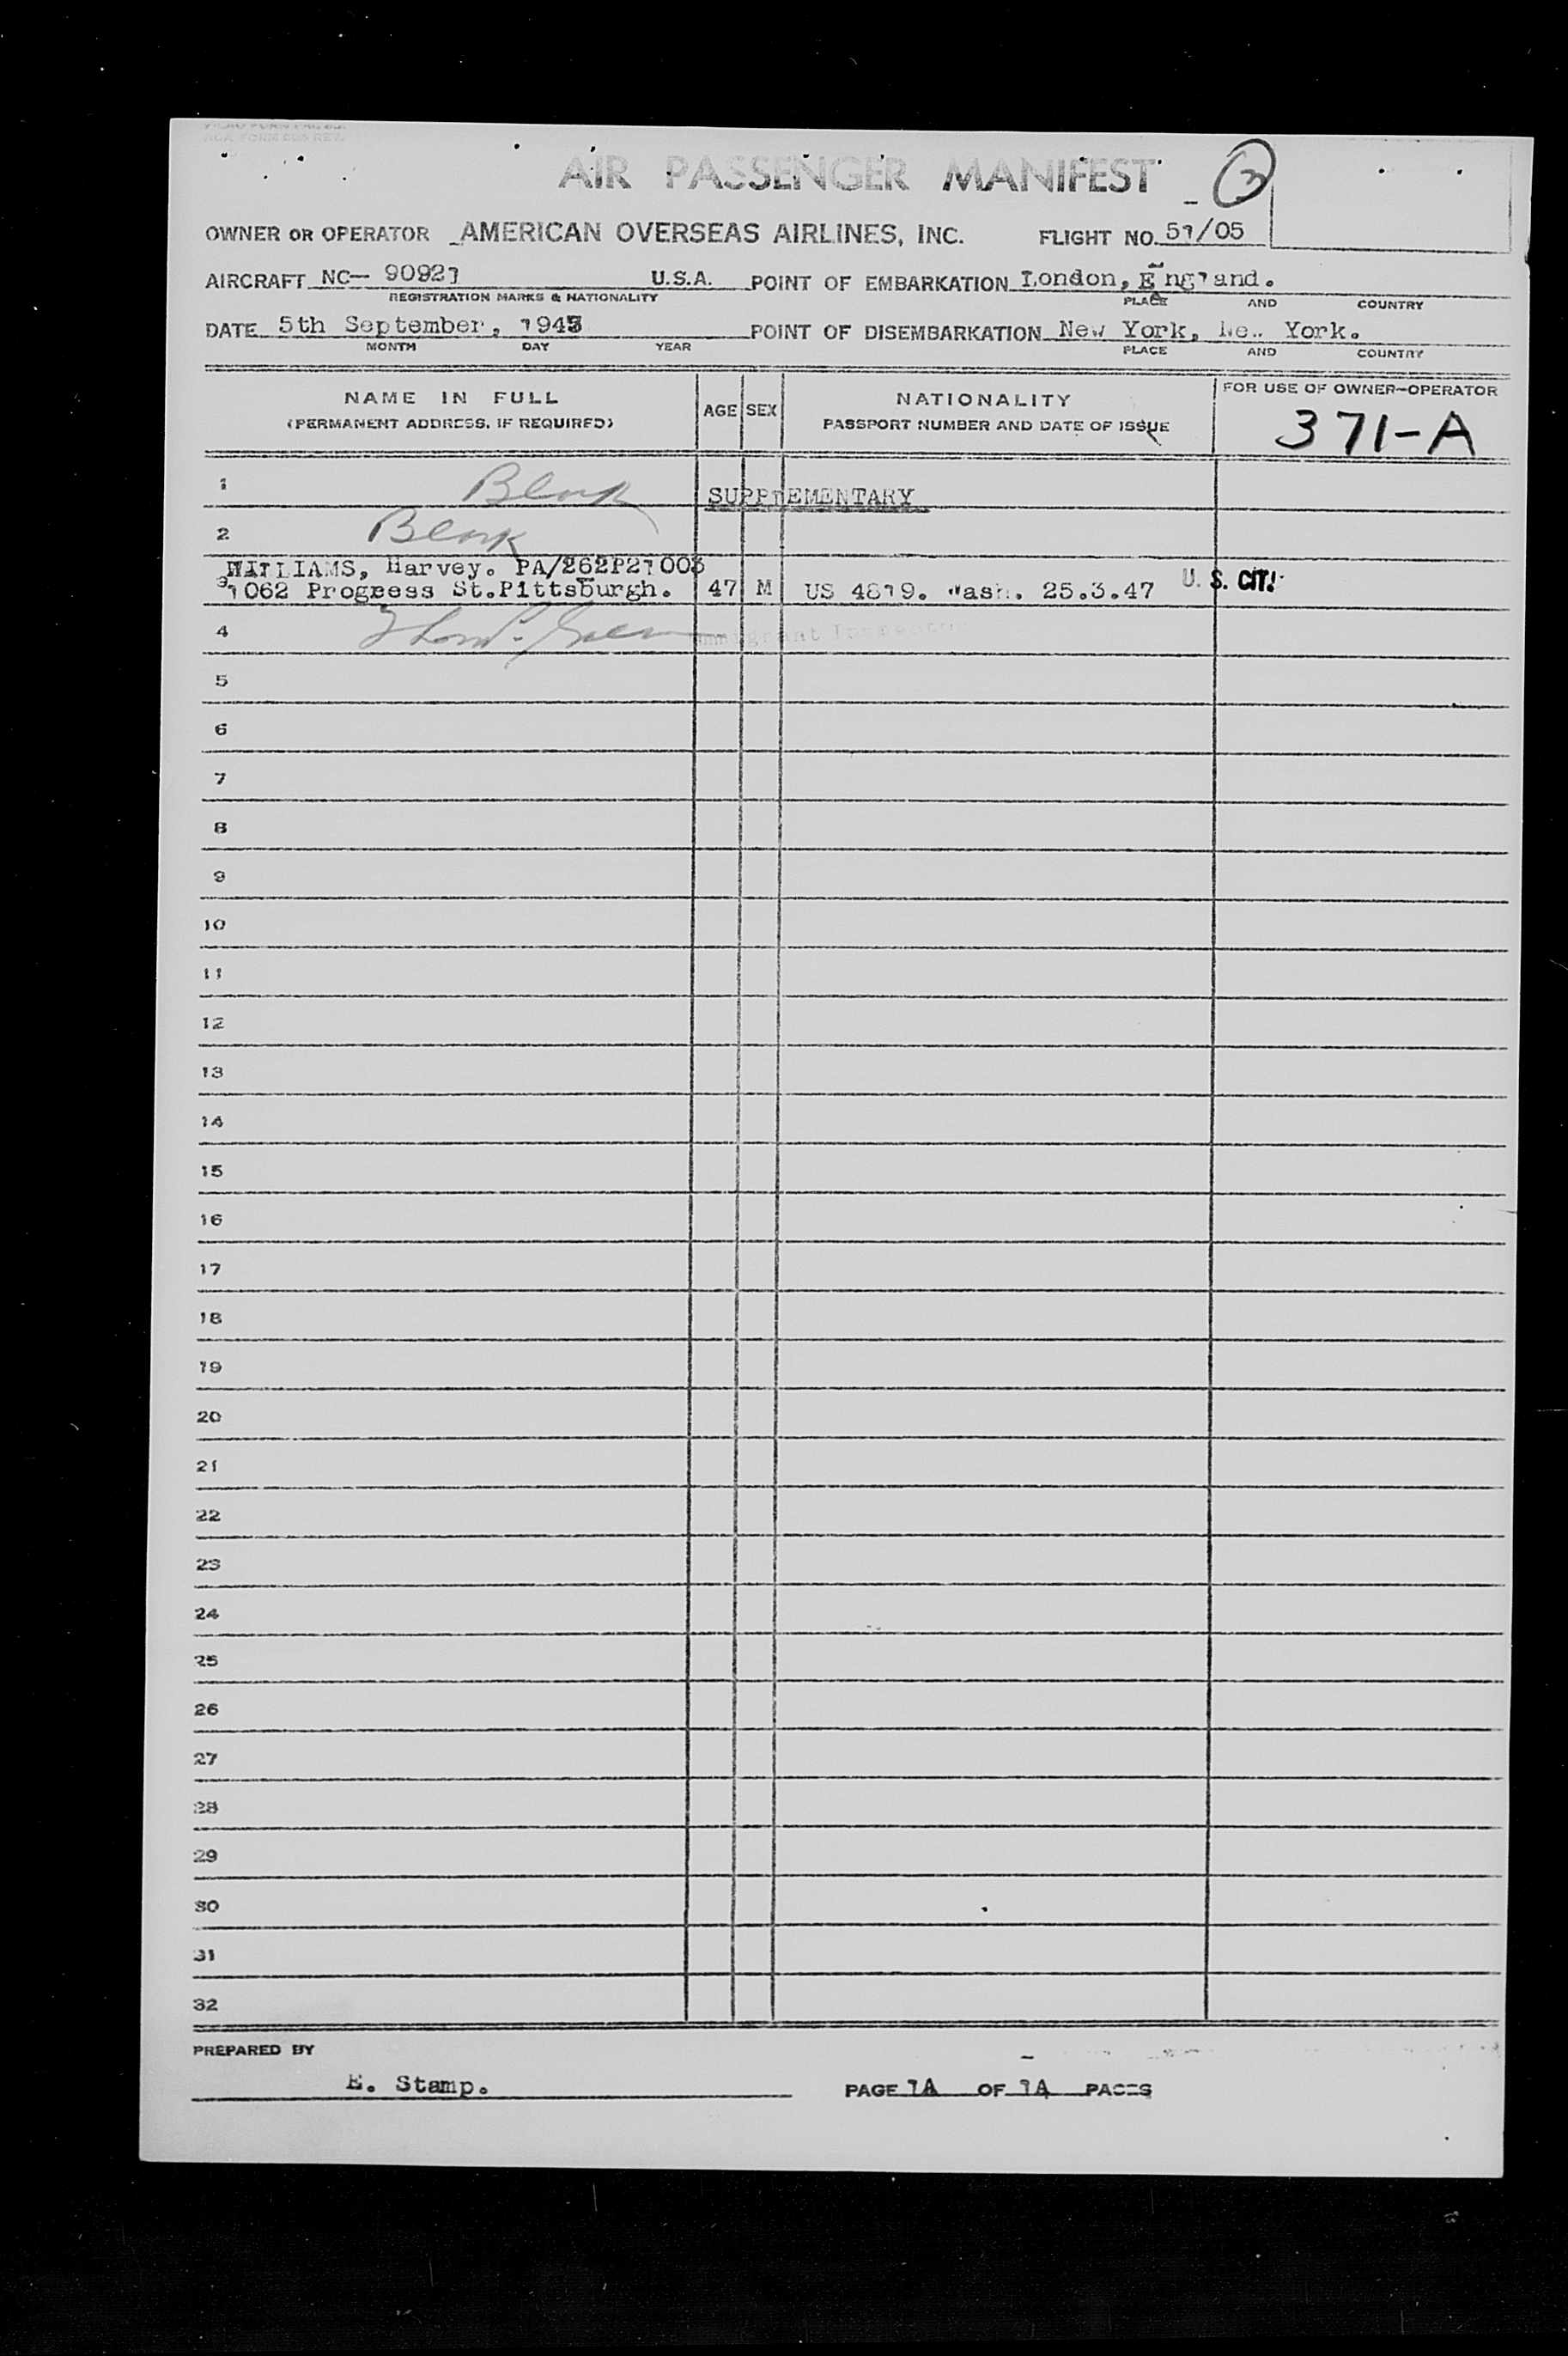 AIR PASSENGER MANIFEST
OWNER OR OPERATOR AMERICAN OVERSEAS AIRLINES, INC. FLIGHT NO. 51/05
AIRCRAFT NC- 90921 U.S.A. POINT OF EMBARKATION London, England.
REGISTRATION MARKS & NATIONALITY PLACE AND COUNTRY
DATE 5th September, 1947 POINT OF DISEMBARKATION New York, New York.
MONTH DAY YEAR PLACE AND COUNTRY
NAME IN FULL AGE SEX NATIONALITY FOR USE OF OWNER-OPERATOR
(PERMANENT ADDRESS, IF REQUIRED) PASSPORT NUMBER AND DATE OF ISSUE 371-A
1 Blank SUPPLEMENTARY
2 Blank
WILLIAMS, Harvey. PA/262P21003
3 1062 Progress St.Pittsburgh. 47 M US 4819. Wash. 25.3.47 U. S. CIT.
4 Immigrant Inspector
5
6
7
8
9
10
11
12
13
14
15
16
17
18
19
20
21
22
23
24
25
26
27
28
29
30
31
32
PREPARED BY
E. Stamp. PAGE 1A OF 1A PAGES